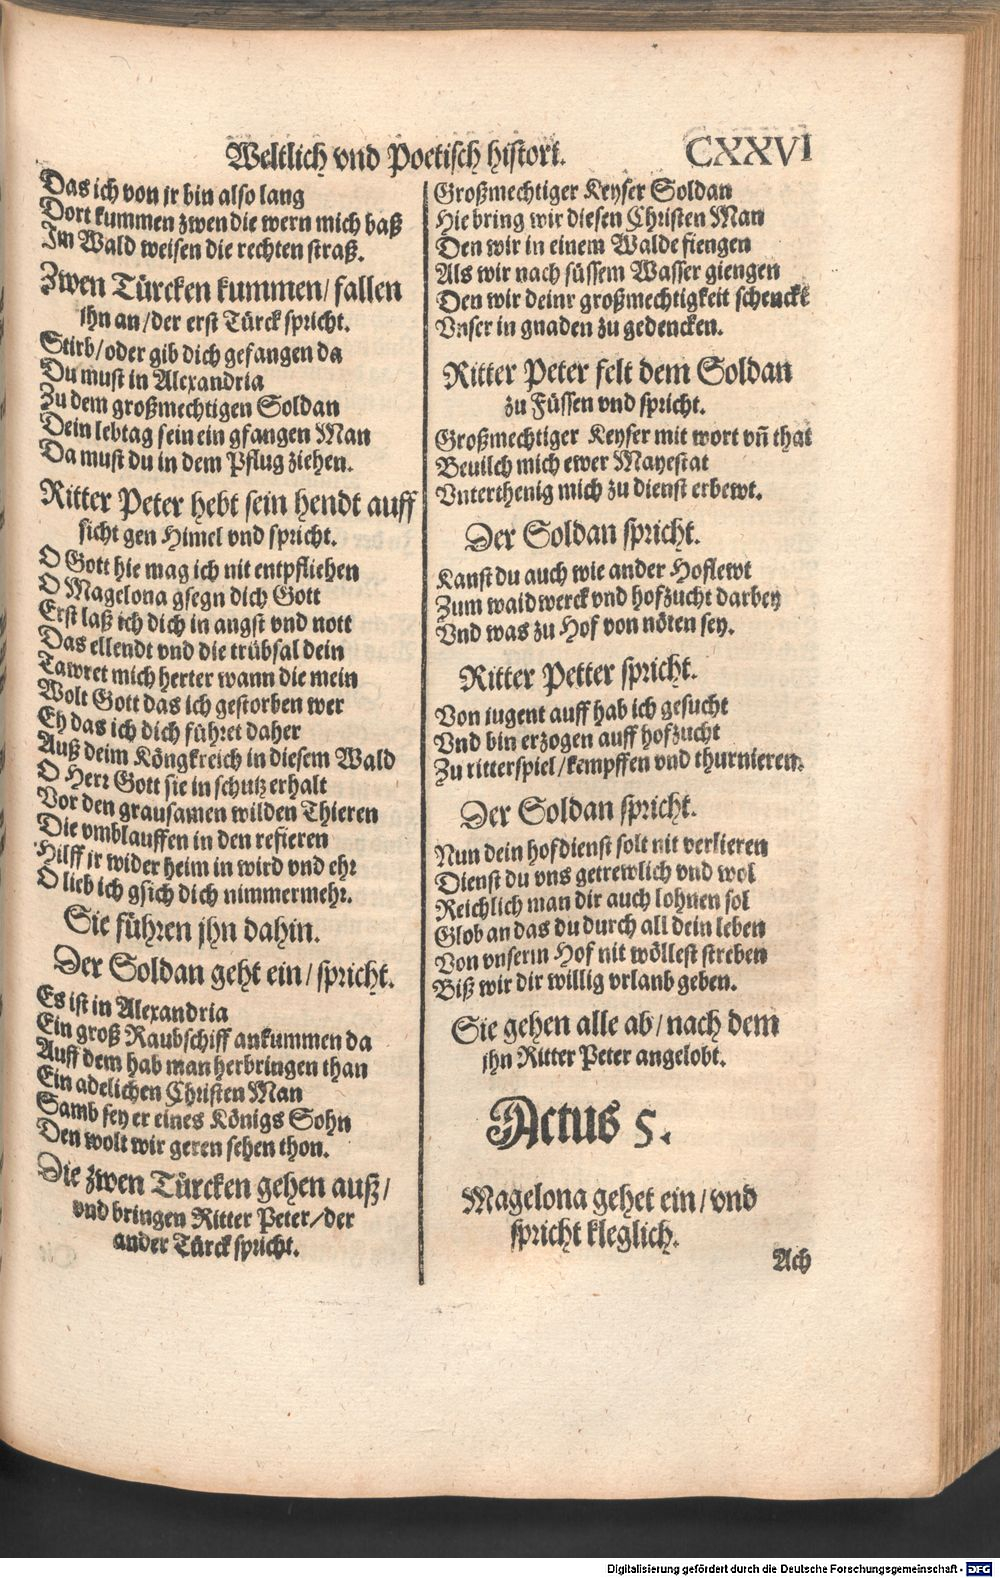 Weltlich vnd Poetisch histori.
CXXVI
Das ich von jr bin also lang
Dort kummen zwen die wern mich baß
Im Wald weisen die rechten straß.
Zwen Türcken kummen/ fallen
jhn an/ der erst Türck spricht.
Stirb/ oder gib dich gefangen da
Du must in Alexandria
Zu dem großmechtigen Soldan
Dein lebtag sein ein gfangen Man
Da must du in dem Pflug ziehen.
Ritter Peter hebt sein hendt auff
sicht gen Himel vnd spricht.
O Gott hie mag ich nit entpfliehen
O Magelona gsegn dich Gott
Erst laß ich dich in angst vnd nott
Das ellendt vnd die trübsal dein
Tawret mich herter wann die mein
Wolt Gott das ich gestorben wer
Eh das ich dich führet daher
Auß deim Köngkreich in diesem Wald
O Herr Gott sie in schutz erhalt
Vor den grausamen wilden Thieren
Die vmblauffen in den refieren
Hilff jr wider heim in wird vnd ehr
O lieb ich gsich dich nimmermehr.
Sie führen jhn dahin.
Der Soldan geht ein/ spricht.
Es ist in Alexandria
Ein groß Raubschiff ankummen da
Auff dem hab man herbringen than
Ein adelichen Christen Man
Samb sey er eines Königs Sohn
Den wolt wir geren sehen thon.
Die zwen Türcken gehen auß/
vnd bringen Ritter Peter/ der
ander Türck spricht.
Großmechtiger Keyser Soldan
Hie bring wir diesen Christen Man
Den wir in einem Walde fiengen
Als wir nach süssem Wasser giengen
Den wir deinr großmechtigkeit schencke
Vnser in gnaden zu gedencken.
Ritter Peter felt dem Soldan
zu Füssen vnd spricht.
Großmechtiger Keyser mit wort vn̄ that
Beuilch mich ewer Mayestat
Vnterthenig mich zu dienst erbewt.
Der Soldan spricht.
Kanst du auch wie ander Hoflewt
Zum waidwerck vnd hofzucht darbey
Vnd was zu Hof von nöten sey.
Ritter Petter spricht.
Von iugent auff hab ich gesucht
Vnd bin erzogen auff hofzucht
Zu ritterspiel/ kempffen vnd thurnieren.
Der Soldan spricht.
Nun dein hofdienst solt nit verlieren
Dienst du vns getrewlich vnd wol
Reichlich man dir auch lohnen sol
Glob an das du durch all dein leben
Von vnserm Hof nit wöllest streben
Biß wir dir willig vrlaub geben.
Sie gehen alle ab/ nach dem
jhn Ritter Peter angelobt.
Actus 5.
Magelona gehet ein/ vnd
spricht kleglich.
Ach
Digitalisierung gefördert durch die Deutsche Forschungsgemeinschaft - DFG